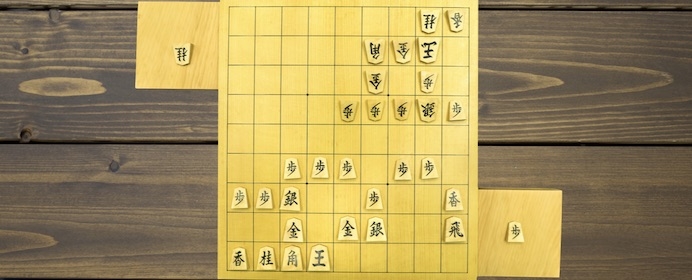 桂 香
桂 角 金 玉
金 歩
歩 歩 歩 銀 歩
歩 歩 歩 歩 歩
歩 歩 銀 歩 香
金 金 銀 飛 歩
香 桂 角 王